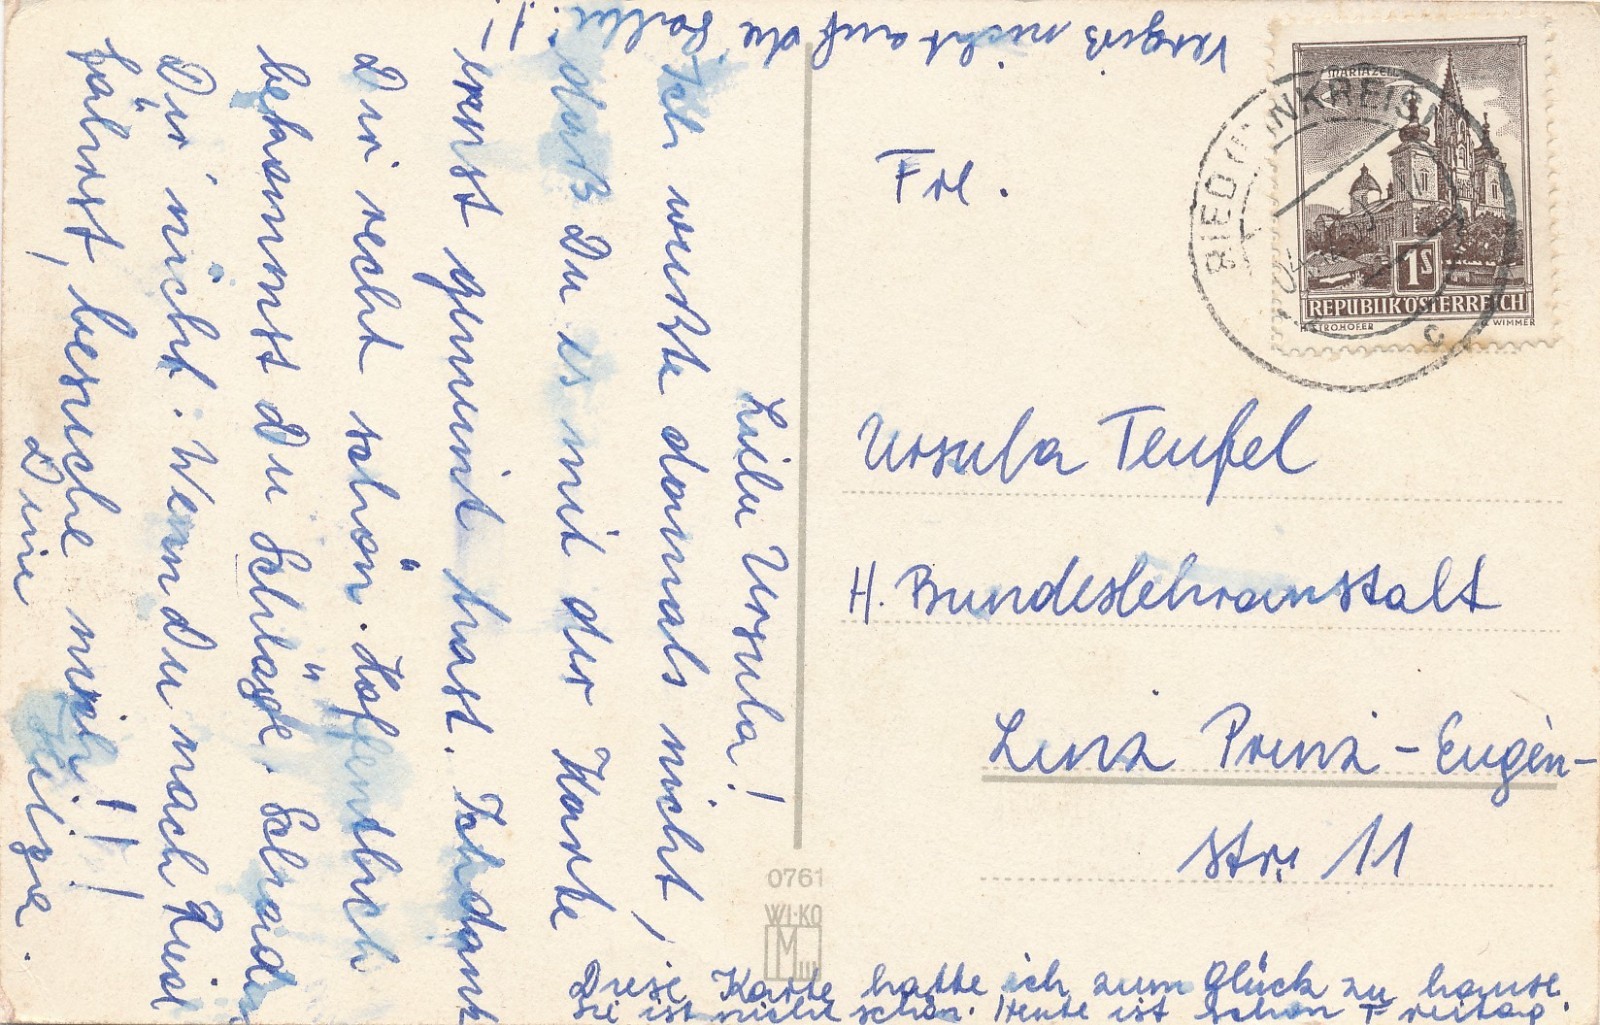 Vergiß nicht auf die !!
Liebe Ursula!
Ich wußte damals nicht,
daß Du es mit der Karte
ernst gemeint hast. Ich dank
Dir recht schön. Hoffentlich
bekommst Du Schläge. Schade
Dir nicht. Wenn Du nach Ried
fährst, besuche mich!!!
Deine Helga.
Frl.
Ursula Teufel
H. Bundeslehranstalt
Linz Prinz-Eugén-
str. 11
Diese Karte hatte ich zum Glück zu hause.
Sie ist nicht schön. Heute ist schon Freitag.
0761
WI-KO
M
MARIAZELL
1S
REPUBLIK ÖSTERREICH
H. STROHOFER
G. WIMMER
RIED IM INNKREIS
c